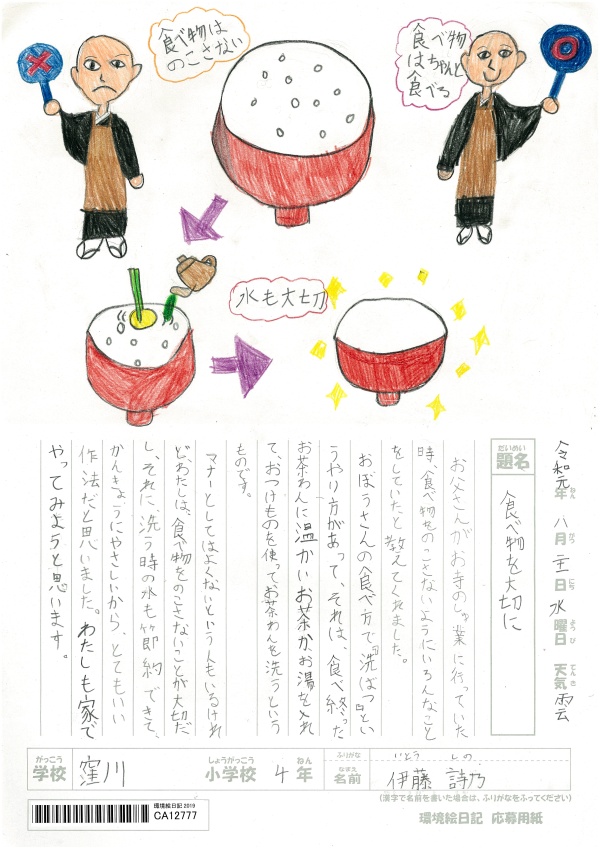 食べ物は
のこさない
食べ物
はちゃんと
食べる
水も大切
令和元年 八月 二十一日 水曜日 天気 雲
ねん がつ にち ようび てんき
だいめい
題名 食べ物を大切に
お父さんがお寺のしゅ業に行っていた
時、食べ物をのこさないようにいろんなこと
をしていたと教えてくれました。
おぼうさんの食べ方で『洗ばつ』とい
うやり方があって、それは、食べ終った
お茶わんに温かいお茶か、お湯を入れ
て、おつけものを使ってお茶わんを洗うという
ものです。
マナーとしてはよくないという人もいるけれ
ど、わたしは、食べ物をのこさないことが大切だ
し、それに、洗う時の水も節約できて、
かんきょうにやさしいから、とてもいい
作法だと思いました。わたしも家で
やってみようと思います。
がっこう しょうがっこう ねん
学校 窪川 小学校 4年
ふりがな いとう しの
なまえ
名前 伊藤 詩乃
(漢字で名前を書いた場合は、ふりがなをふってください)
環境絵日記 2019
CA12777
環境絵日記 応募用紙